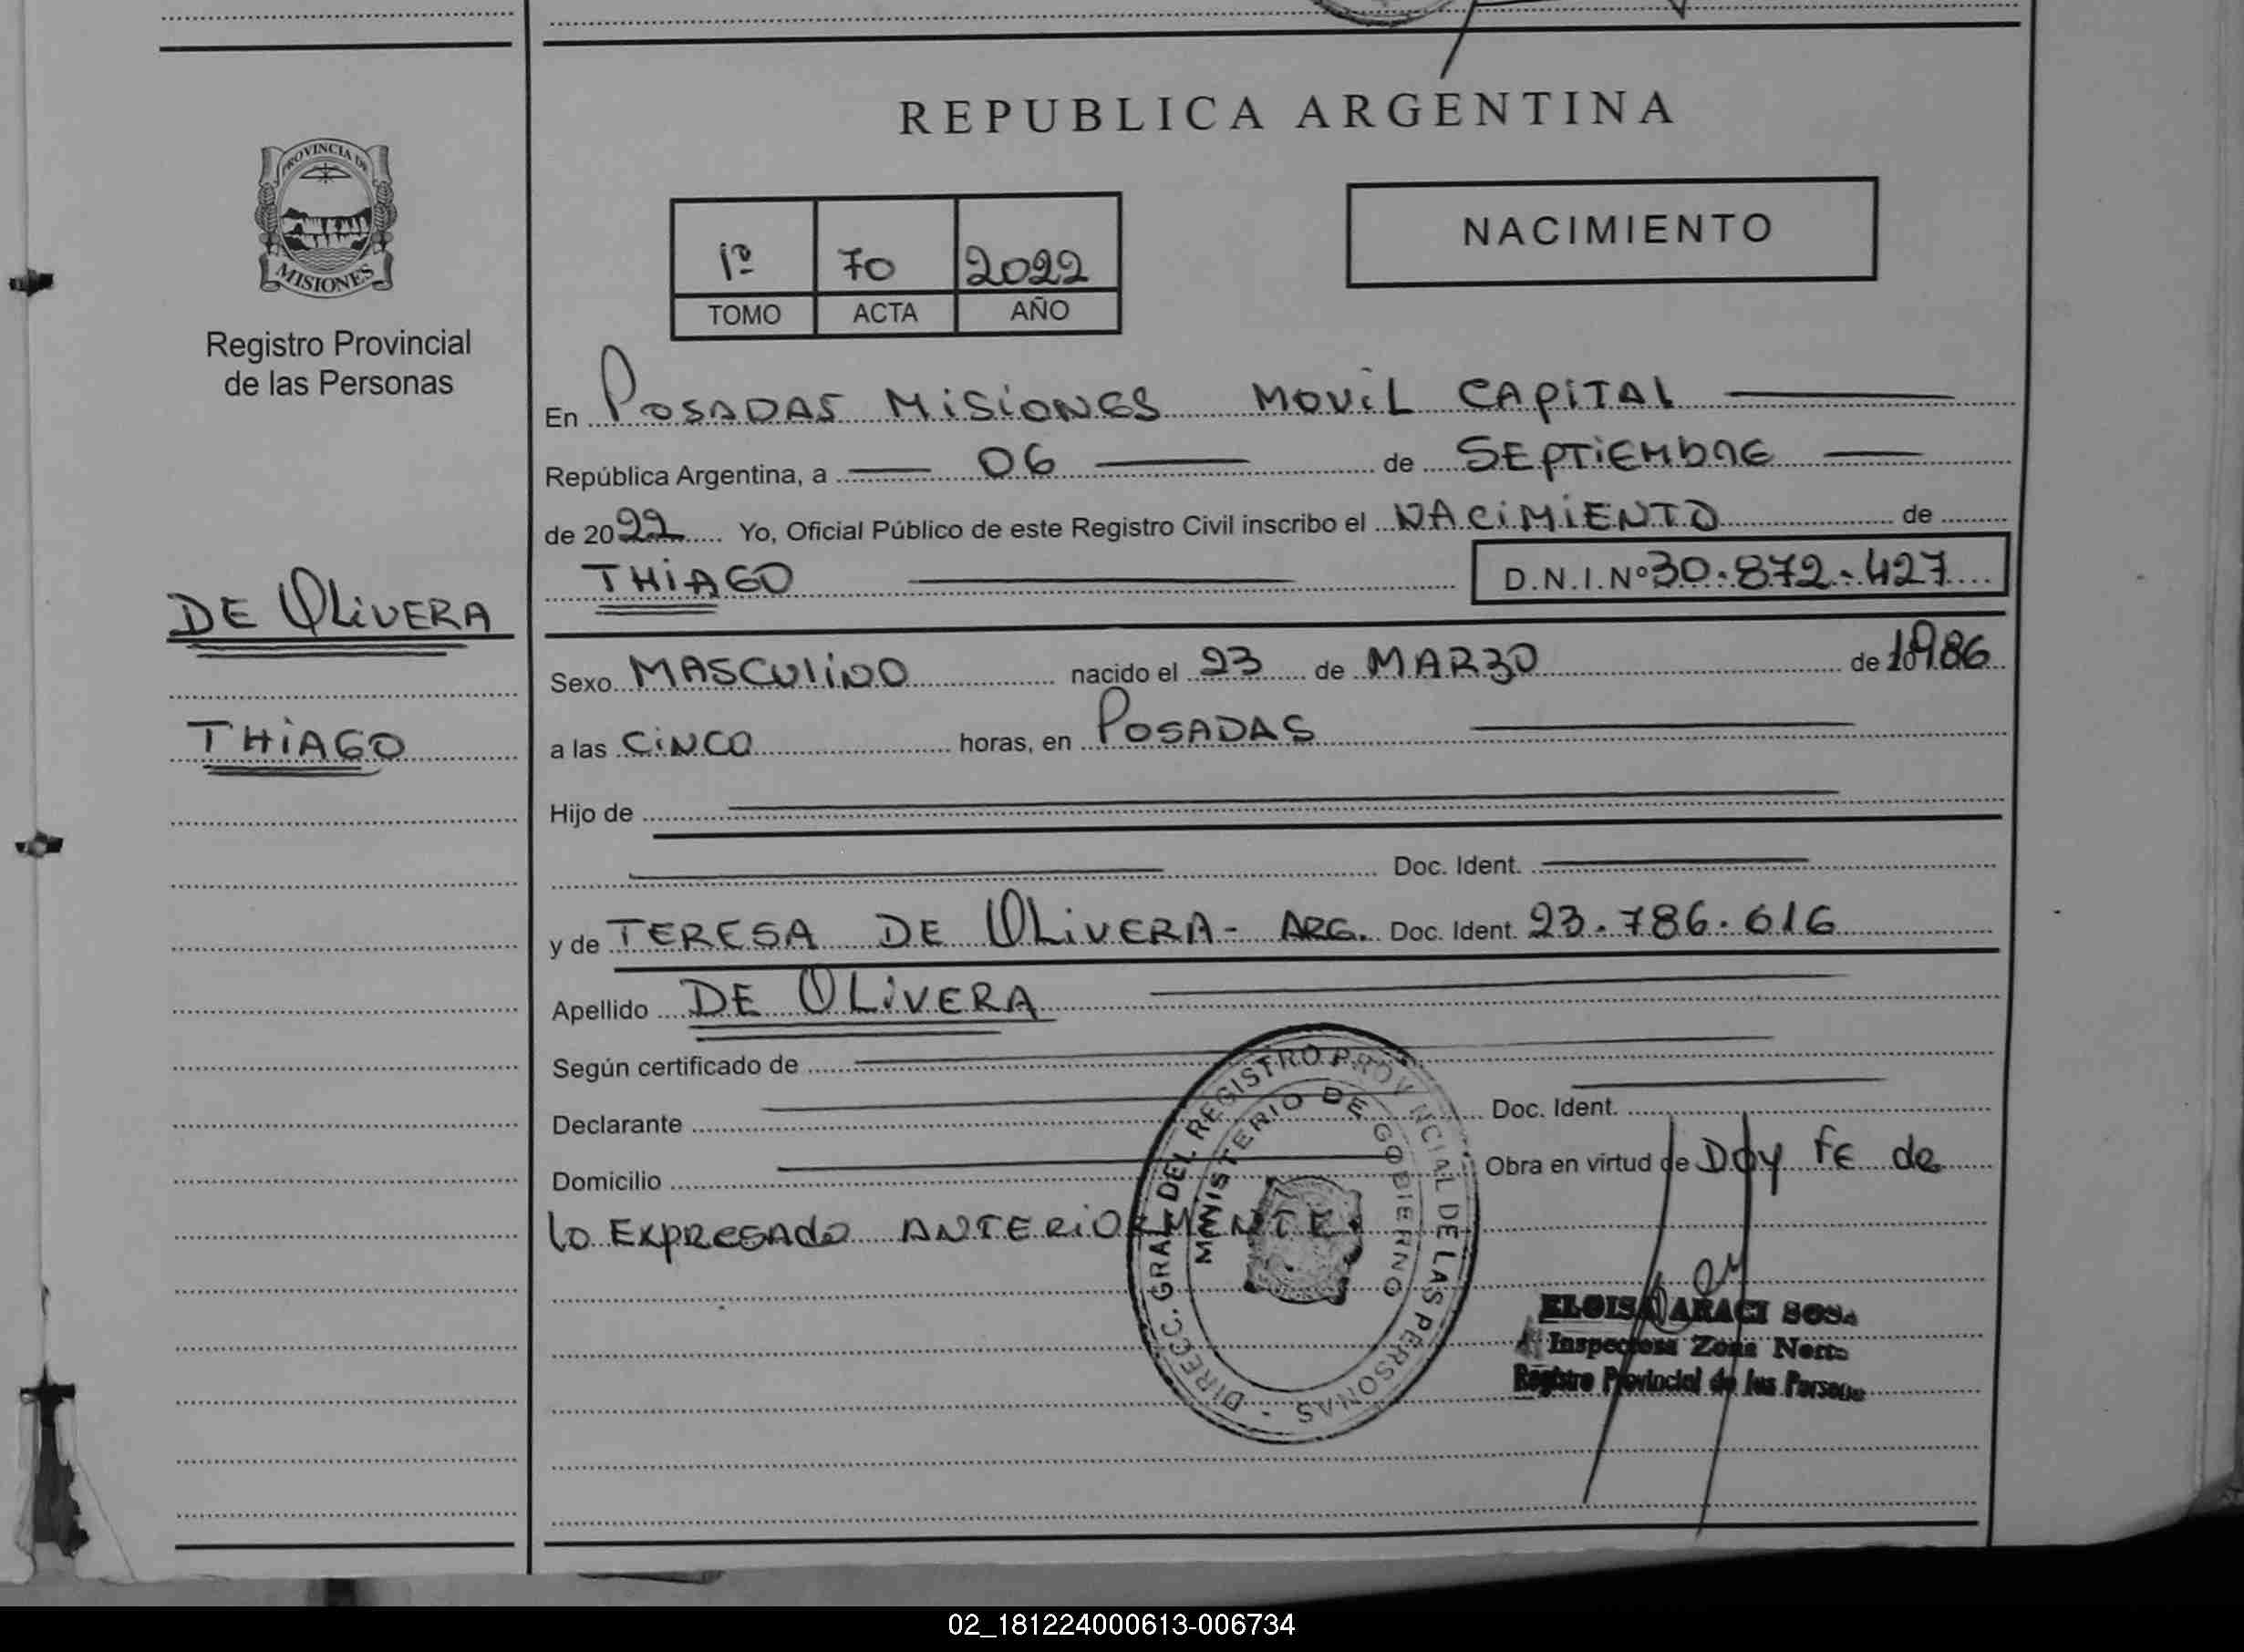 REPUBLICA ARGENTINA
PROVINCIA DE
MISIONES
Registro Provincial
de las Personas
NACIMIENTO
1º 70 2022
TOMO ACTA AÑO
En POSADAS MISIONES MOVIL CAPITAL
República Argentina, a 06 de SEPTIEMBRE
de 2022 Yo, Oficial Público de este Registro Civil inscribo el NACIMIENTO de
THIAGO D.N.I.Nº 30.872.427
DE OLIVERA
THIAGO
Sexo MASCULINO nacido el 23 de MARZO de 1986
a las CINCO horas, en POSADAS
Hijo de
Doc. Ident.
y de TERESA DE OLIVERA - ARG. Doc. Ident. 23.786.616
Apellido DE OLIVERA
Según certificado de
Declarante Doc. Ident.
Domicilio Obra en virtud de Doy FE de
lo EXPRESADO ANTERIORMENTE
DIRECC. GRAL. DEL REGISTRO PROVINCIAL DE LAS PERSONAS -
MINISTERIO DE GOBIERNO
ELOISA ARACI SOSA
Inspectora Zona Norte
Registro Provincial de las Personas
02_181224000613-006734